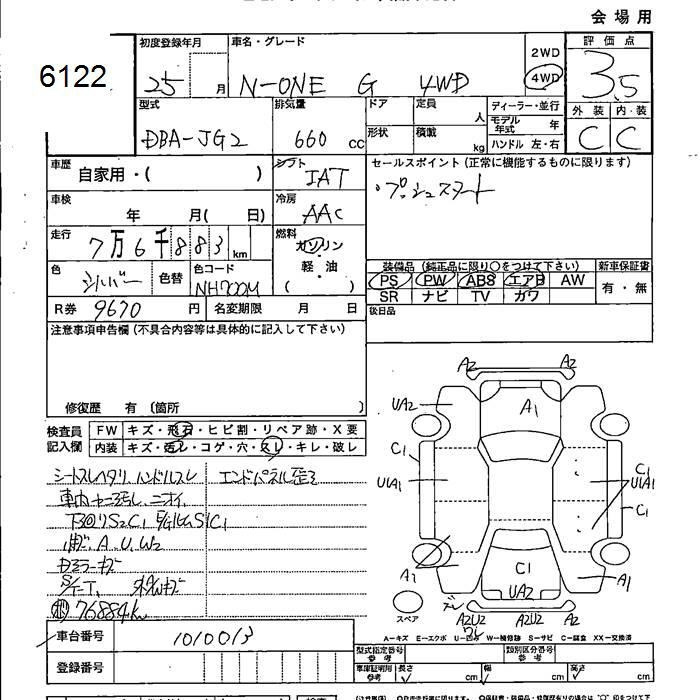 会場用
6122
初度登録年月
25
月
車名・グレード
N-ONE G 4WD
2WD
4WD
評価点
3.5
外装 内・装
C C
型式
DBA-JG2
排気量
660 cc
ドア
定員
人
形状
積載
kg
ディーラー・並行
モデル年式 年
ハンドル 左・右
車歴
自家用・( )
シフト
IAT
セールスポイント(正常に機能するものに限ります)
・プッシュスタート
車検
年 月( 日)
冷房
AAC
走行
7万6千883km
燃料
ガソリン
軽・油
( )
色
シルバー
色替
色コード
NH700M
装備品(純正品に限り○をつけて下さい)
新車保証書
PS PW ABS エアB AW
有・無
SR ナビ TV カワ
R券 9670 円
名変期限 月 日
後日品
注意事項申告欄(不具合内容等は具体的に記入して下さい)
修復歴 有〔箇所 〕
検査員記入欄
FW キズ・飛石・ヒビ割・リペア跡・X要
内装 キズ・汚レ・コゲ・穴・スレ・キレ・破レ
シートスレヘタリ、ハンドルスレ
エンドパネル歪ミ
A、U、W2
76884km
A2 A2
UA2
A1
C1
U1A1
C1
U1A1
C1
A2
C1
UA2
A1
スペア
A2U2 A2U2 A2
A=キズ E=エクボ U=凹み W=補修跡 S=サビ C=腐食 XX=交換済
車台番号
1010013
登録番号
型式指定番号 参考
類別区分番号 参考
車庫証明用 参考
長さ cm
幅 cm
高さ cm